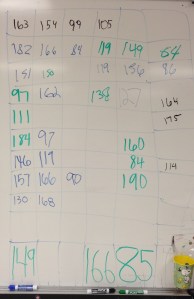 163 154 99 105
182 166 84 119 149 54
151 150 119 156 86
97 162 138 27 164
111 175
184 97 160
146 119 84 114
157 166 90 190
130 168
149 166 85